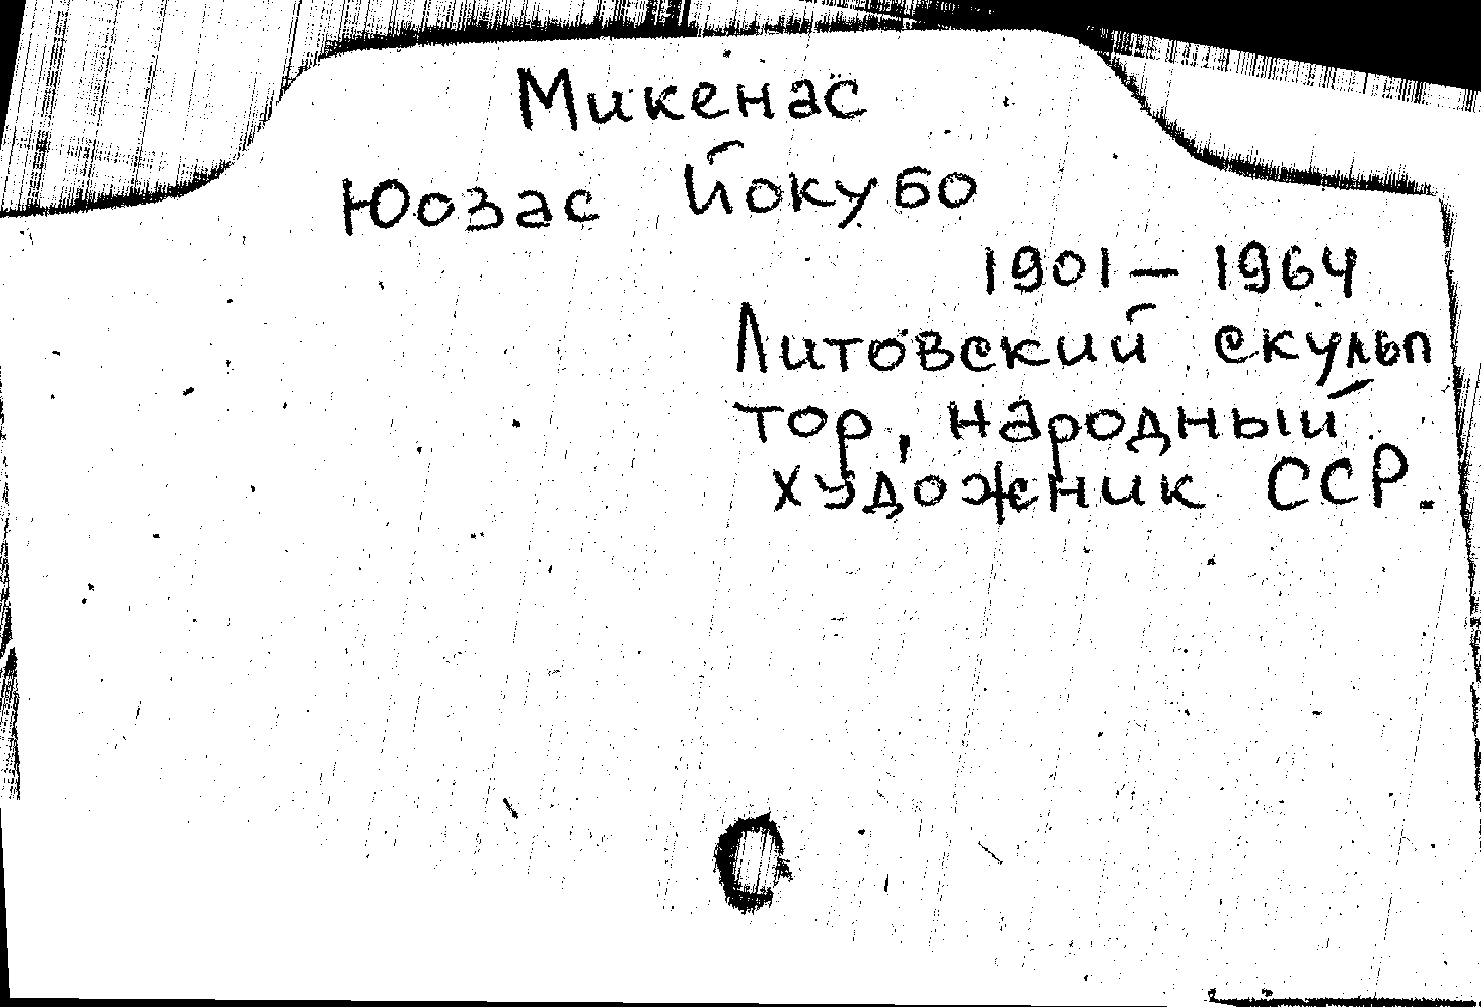 Микенас
Юозас Йокубо
1901 – 1964
Литовский скульп
тор, народный
художник ССР.